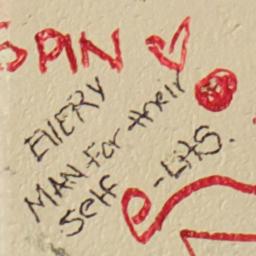 SPIN
EVERY
MAN For their
Self -LHS.